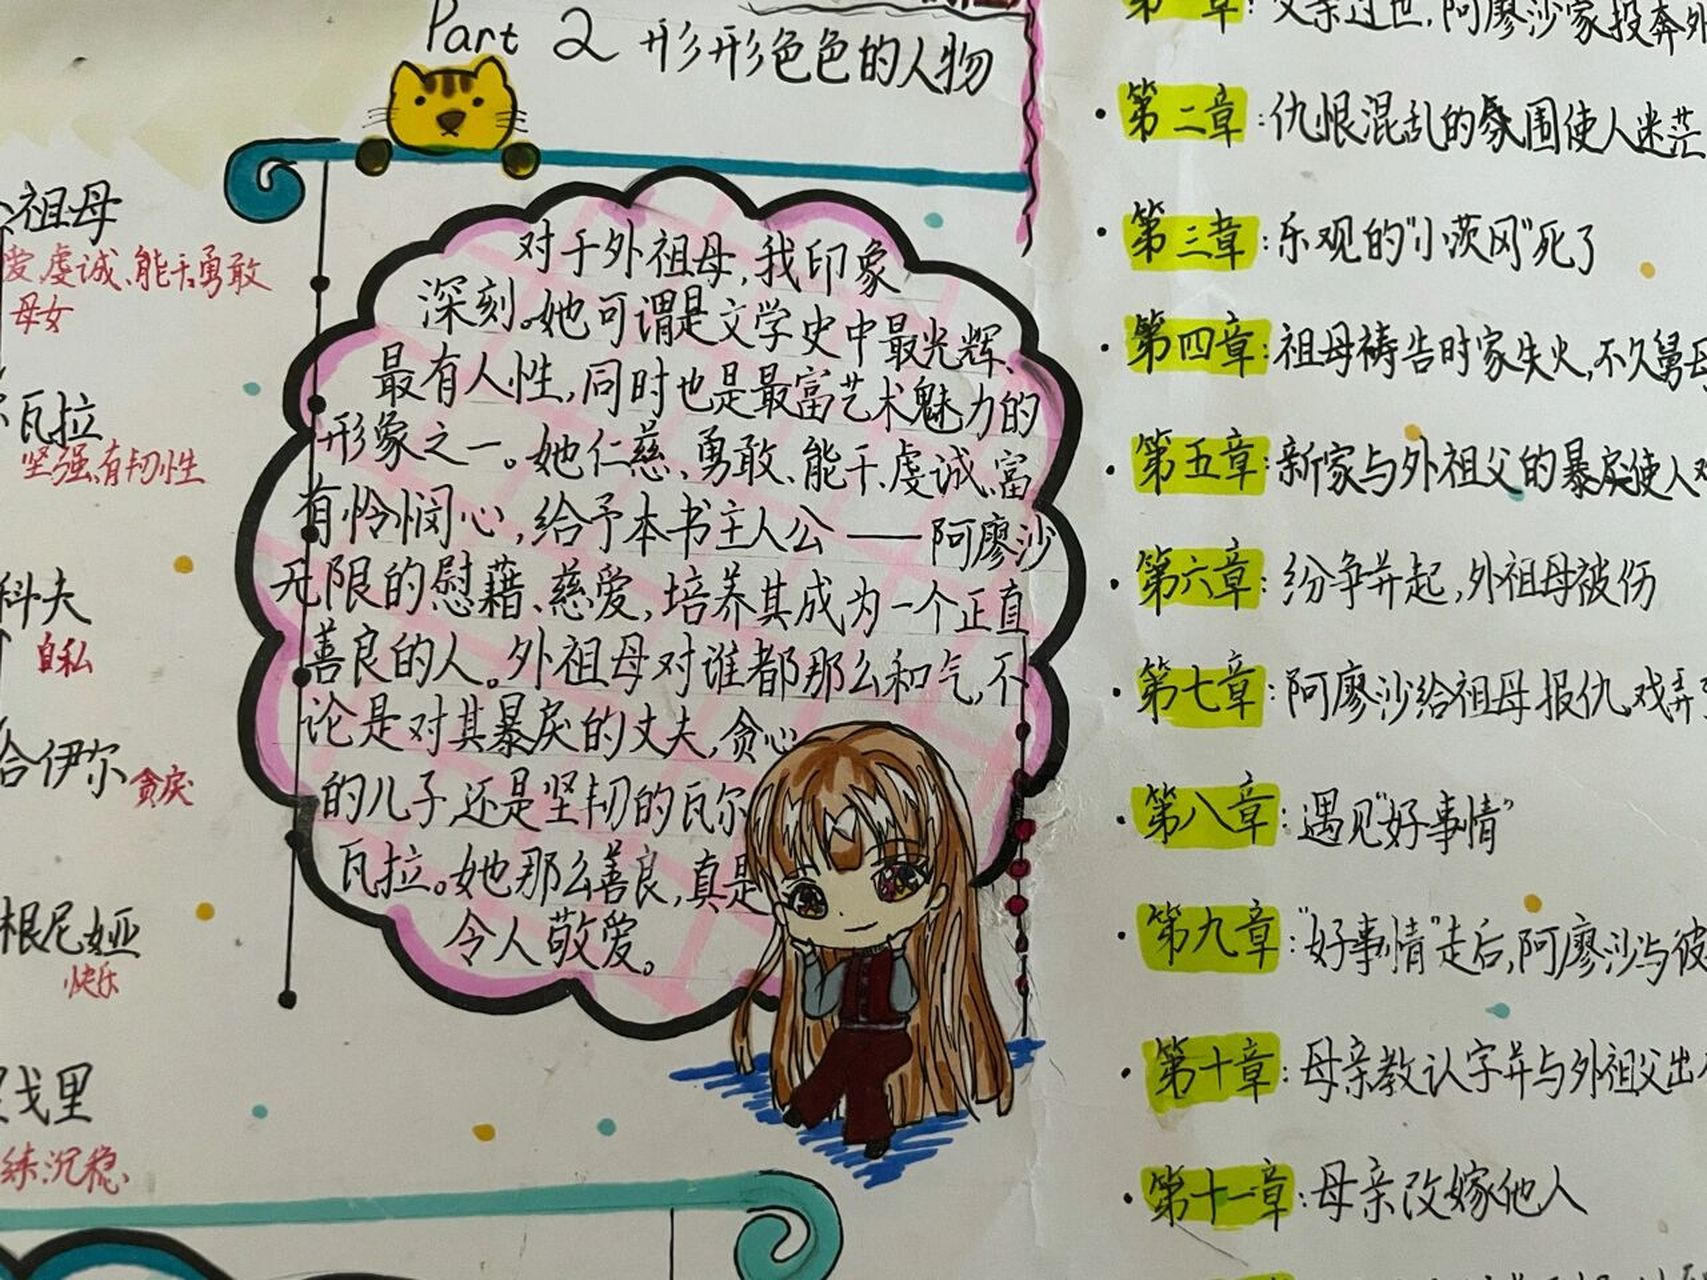 Part 2 形形色色的人物
祖母
爱、虔诚、能干、勇敢
母女
瓦拉
坚强、有韧性
科夫
自私
哈伊尔
贪戾
根尼娅
快乐
戈里
练、沉稳、
对于外祖母,我印象
深刻。她可谓是文学史中最光辉、
最有人性,同时也是最富艺术魅力的
形象之一。她仁慈、勇敢、能干、虔诚、富
有怜悯心,给予本书主人公——阿廖沙
无限的慰藉、慈爱,培养其成为一个正直
善良的人。外祖母对谁都那么和气,不
论是对其暴戾的丈夫,贪心
的儿子还是坚韧的瓦尔
瓦拉。她那么善良,真是
令人敬爱。
章:父亲过世,阿廖沙家投奔外
第二章:仇恨混乱的氛围使人迷茫
第三章:乐观的"小茨冈"死了
第四章:祖母祷告时家失火,不久舅母
第五章:新家与外祖父的暴戾使人
第六章:纷争并起,外祖母被伤
第七章:阿廖沙给祖母报仇,戏弄
第八章:遇见"好事情"
第九章:"好事情"走后,阿廖沙与彼
第十章:母亲教认字并与外祖父出
第十一章:母亲改嫁他人